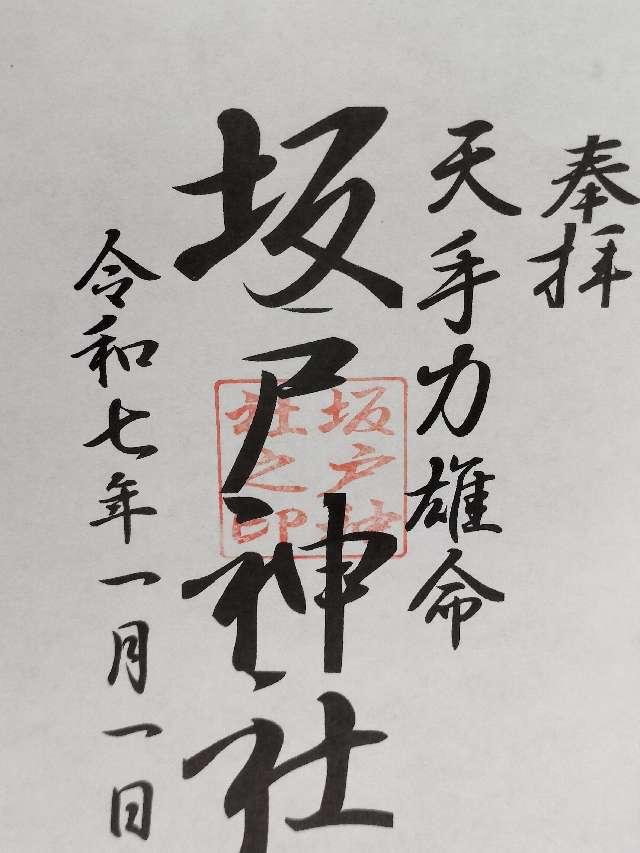 奉拝
天手力雄命
坂戸神社
坂戸神
社之印
令和七年一月一日